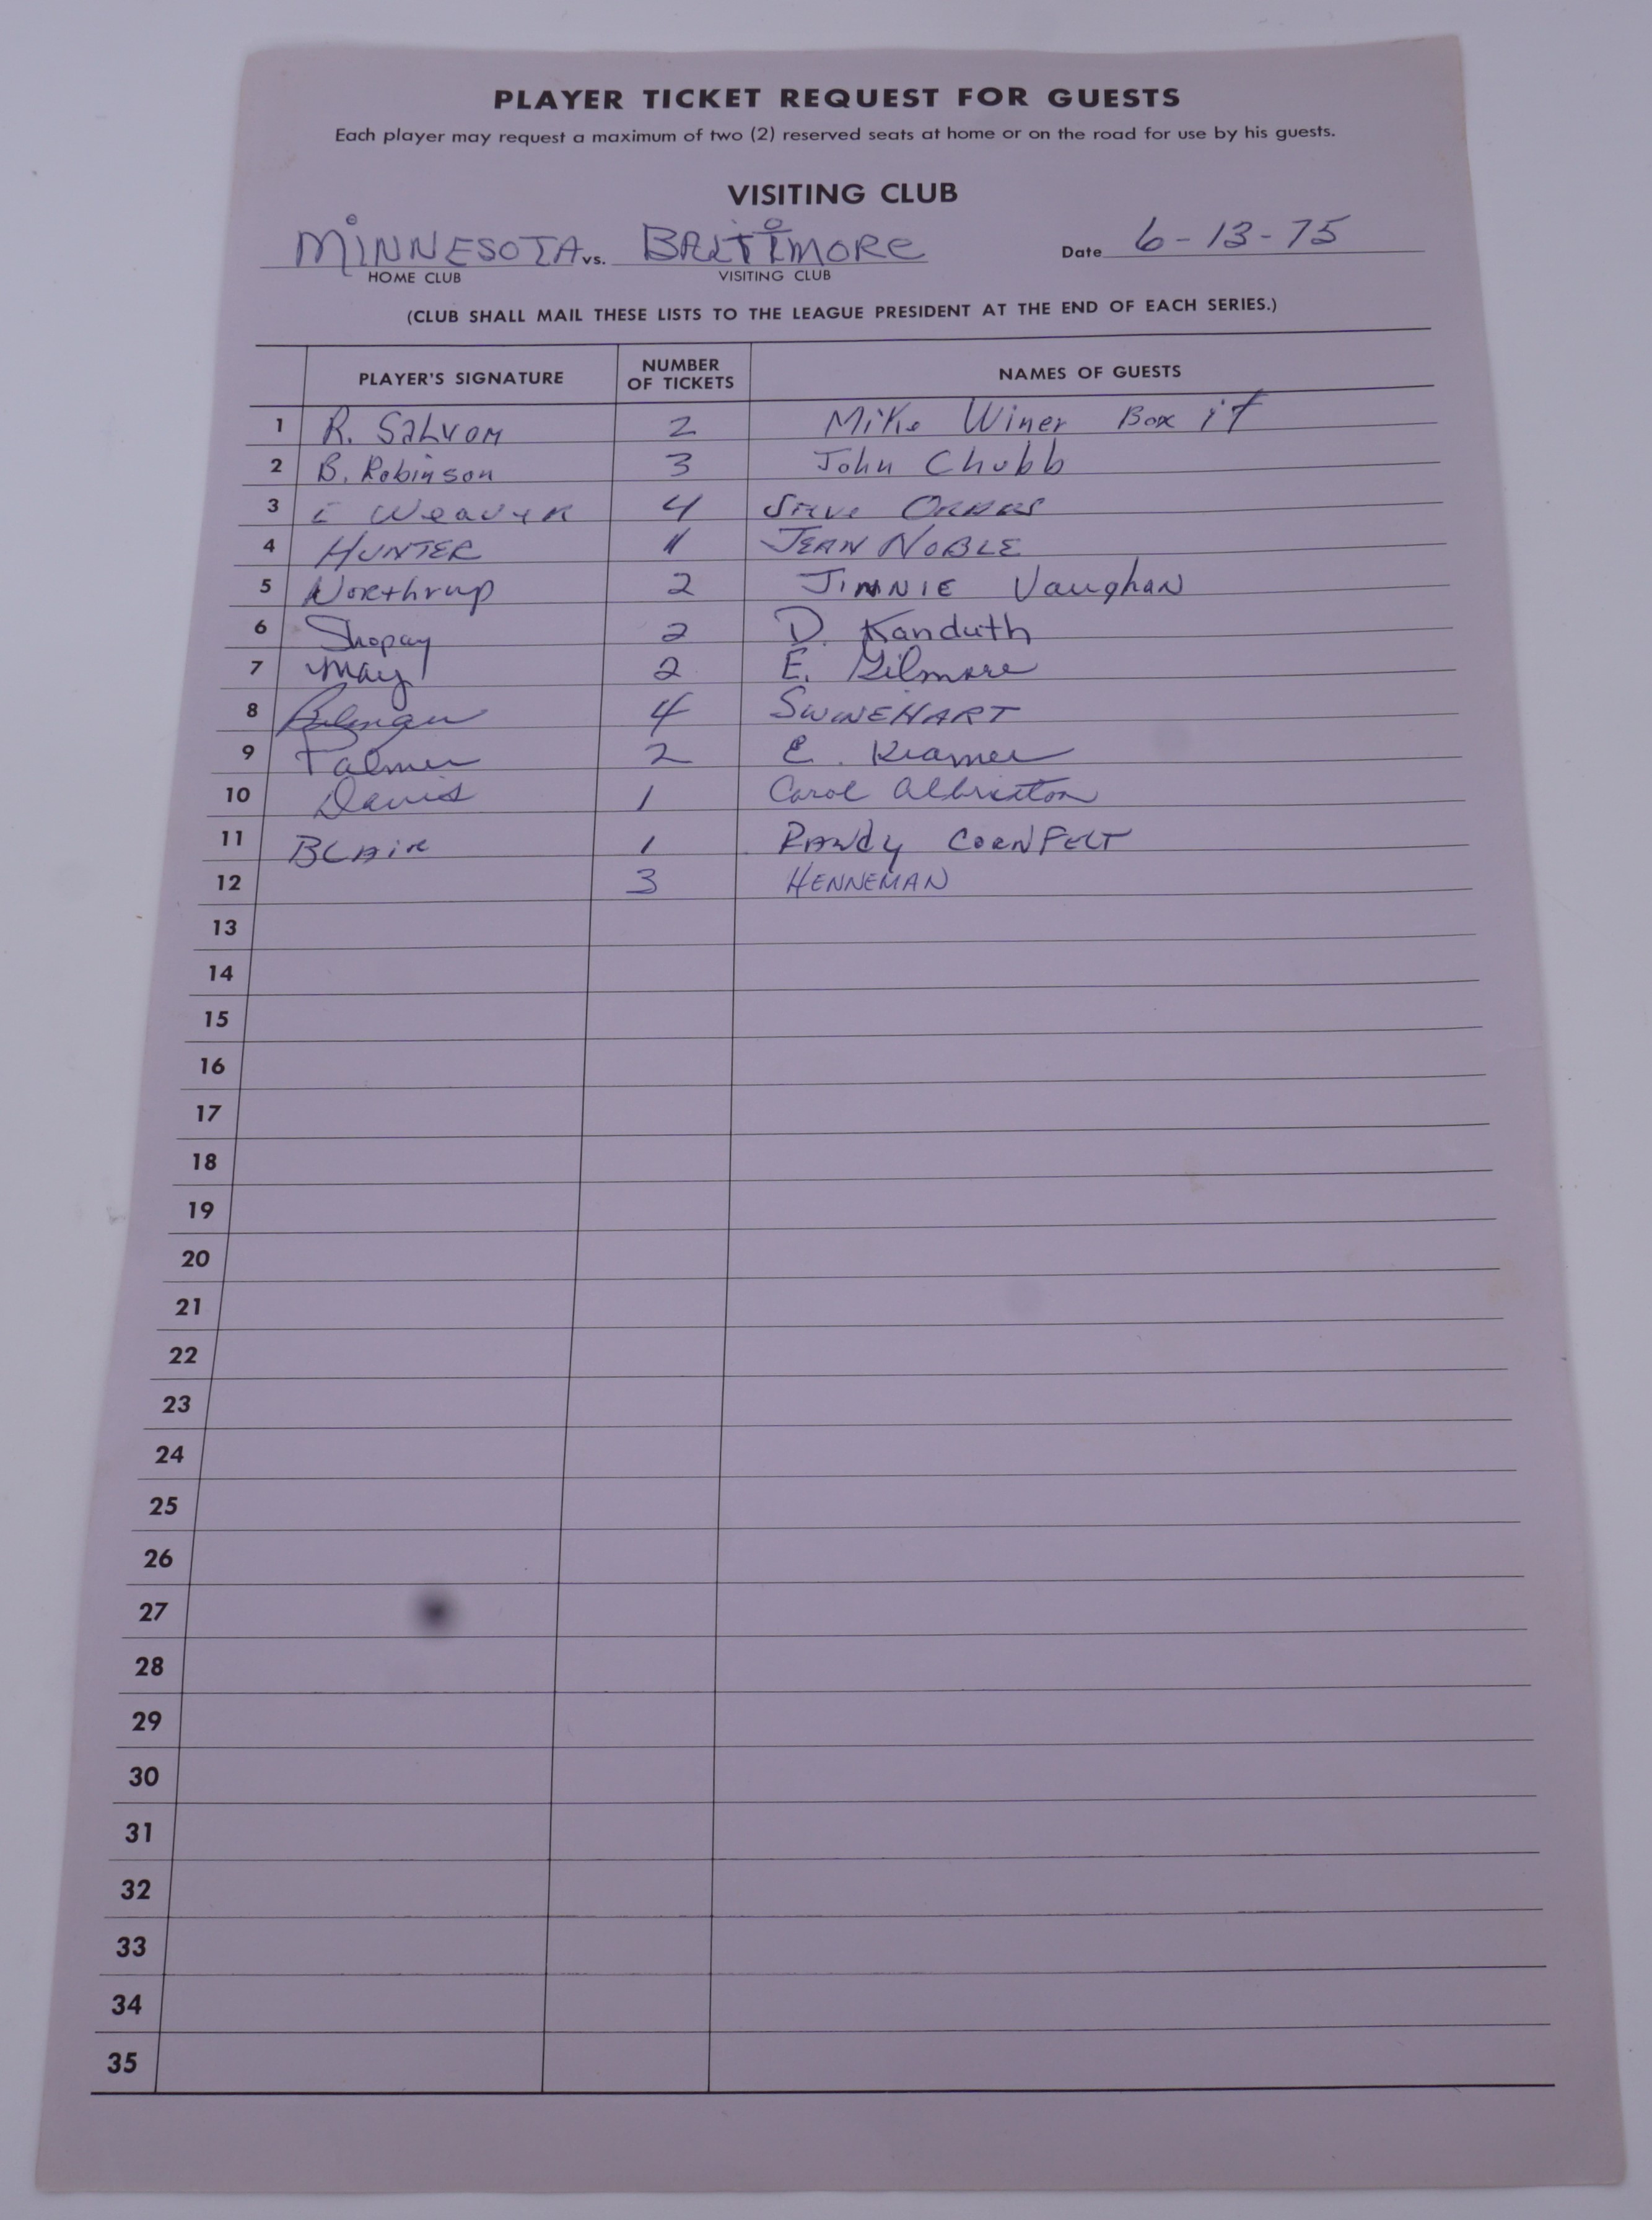 PLAYER TICKET REQUEST FOR GUESTS
Each player may request a maximum of two (2) reserved seats at home or on the road for use by his guests.
VISITING CLUB
MINNESOTA vs. BALTIMORE Date 6-13-75
HOME CLUB VISITING CLUB
(CLUB SHALL MAIL THESE LISTS TO THE LEAGUE PRESIDENT AT THE END OF EACH SERIES.)
PLAYER'S SIGNATURE NUMBER OF TICKETS NAMES OF GUESTS
1 R. SALVOM 2 Mike Winer Box it
2 B. Robinson 3 John Chubb
3 E Weaver 4 Steve
4 HUNTER JEAN NOBLE
5 Northrup 2 JIMNIE Vaughan
6 Shopay 2 D. Kanduth
7 May 2 E. Gilmore
8 4 SWINEHART
9 Palmer 2 E. Kramer
10 Davis 1 Carol Albritton
11 BLAIR 1 RANDY CORNFELT
12 3 HENNEMAN
13
14
15
16
17
18
19
20
21
22
23
24
25
26
27
28
29
30
31
32
33
34
35